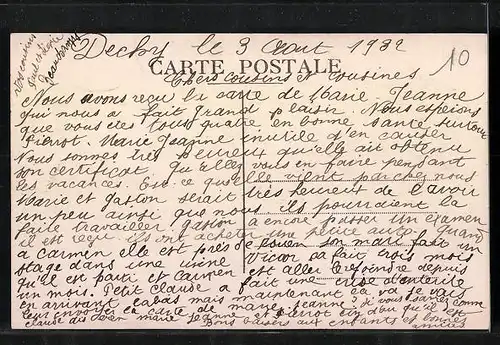 Vos cousins
Paul et Sylvie
Beauterme
Dechy le 3 Aout 1932
10
CARTE POSTALE
Chers cousins et cousines
Nous avons reçu la carte de Marie Jeanne
qui nous a fait grand plaisir. Nous espérons
que vous êtes tous quatre en bonne santé surtout
Pierrot. Marie Jeanne inutile d'en causer
Nous sommes très heureux qu'elle ait obtenu
son certificat. Qu'elle vous en faire pendant
les vacances. Est-ce qu'elle vient par chez nous
Marie et gaston serait très heureux de l'avoir
un peu ainsi que nous ils pourraient la
faire travailler. Gaston a encore passer un examen
il est reçu. ils ont acheter une petite auto. Quand
a Carmen elle est près de Rouen son mari fait un
stage dans une usine Victor sa fait trois mois
qu'il est parti et Carmen est aller le rejoindre depuis
un mois. Petit Claude a fait une crise d'entérite
en arrivant labas mais maintenant ca va je vais
leur envoyer la carte de marie jeanne
claude dis marie jeanne et pierrot
Bons baisers aux enfants et bonnes
amitiés